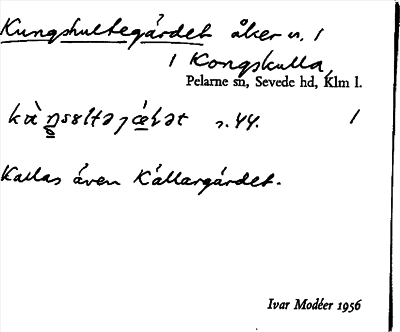 Kungshultegärdet åker n. 1
i Kongskulla,
Pelarne sn, Sevede hd, Klm l.
s. 44. /
Kallas även Källargärdet.
Ivar Modéer 1956